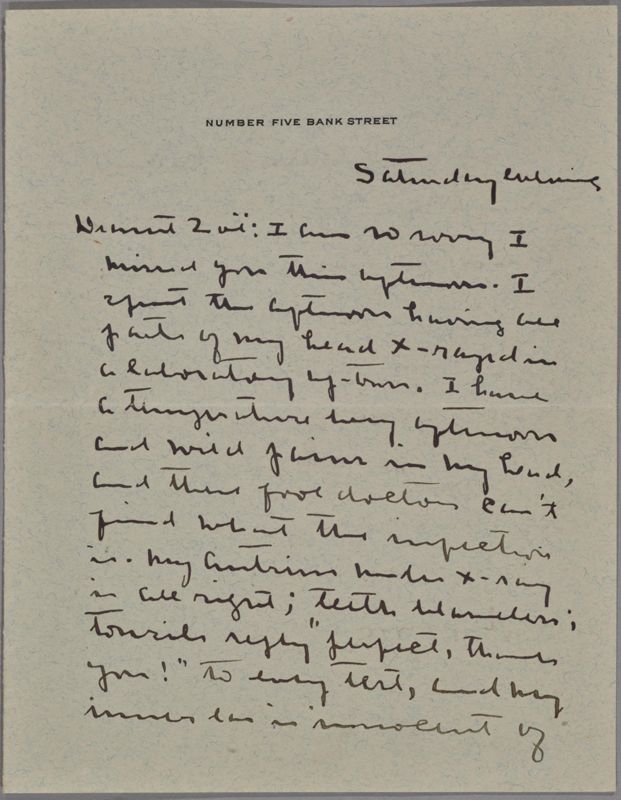 NUMBER FIVE BANK STREET
Saturday evening
Dearest Zoë: I am so sorry I
missed you this afternoon. I
spent the afternoon having all
parts of my head x-rayed in
a laboratory up-town. I have
a temperature every afternoon
and wild pains in my head,
and these fool doctors can't
find what the infection
is. My antrim under x-ray
is all right; teeth blameless;
tonsils reply "perfect, thank
you!" to every test, and my
inner ear is innocent of